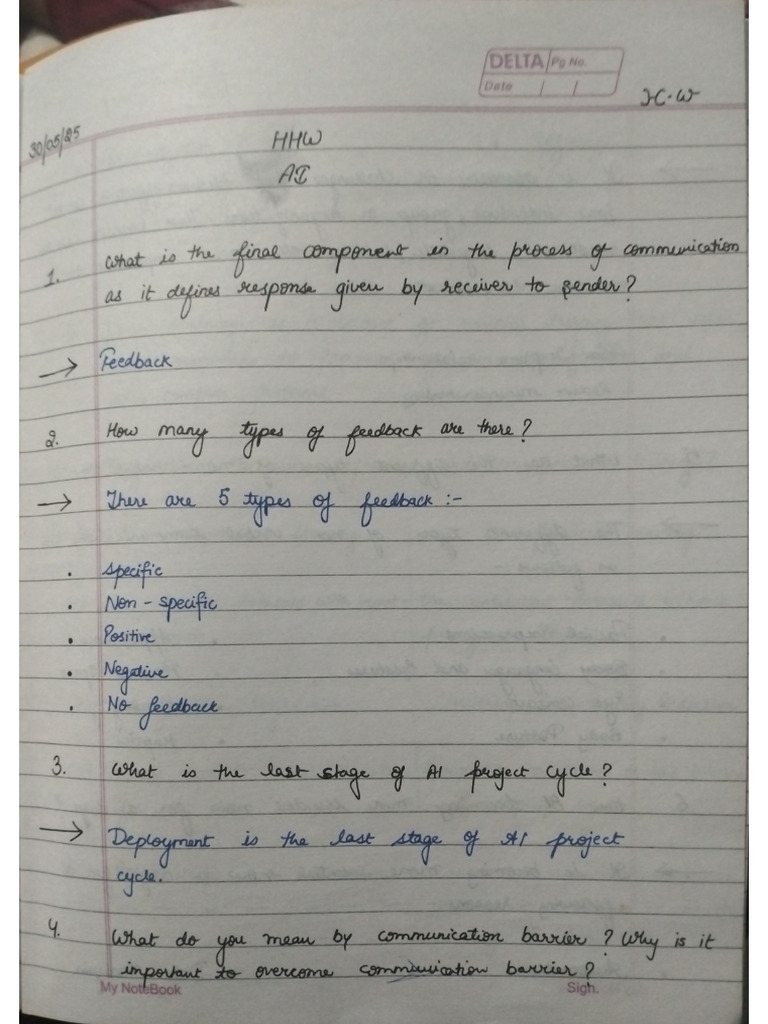 DELTA Pg No.
Date
H.W
30/05/25
HHW
AI
1. What is the final component in the process of communication
as it defines response given by receiver to sender?
→ Feedback
2. How many types of feedback are there?
→ There are 5 types of feedback :-
• Specific
• Non - specific
• Positive
• Negative
• No feedback
3. What is the last stage of AI project cycle?
→ Deployment is the last stage of AI project
cycle.
4. What do you mean by communication barrier? Why is it
important to overcome communication barrier?
My NoteBook Sign.